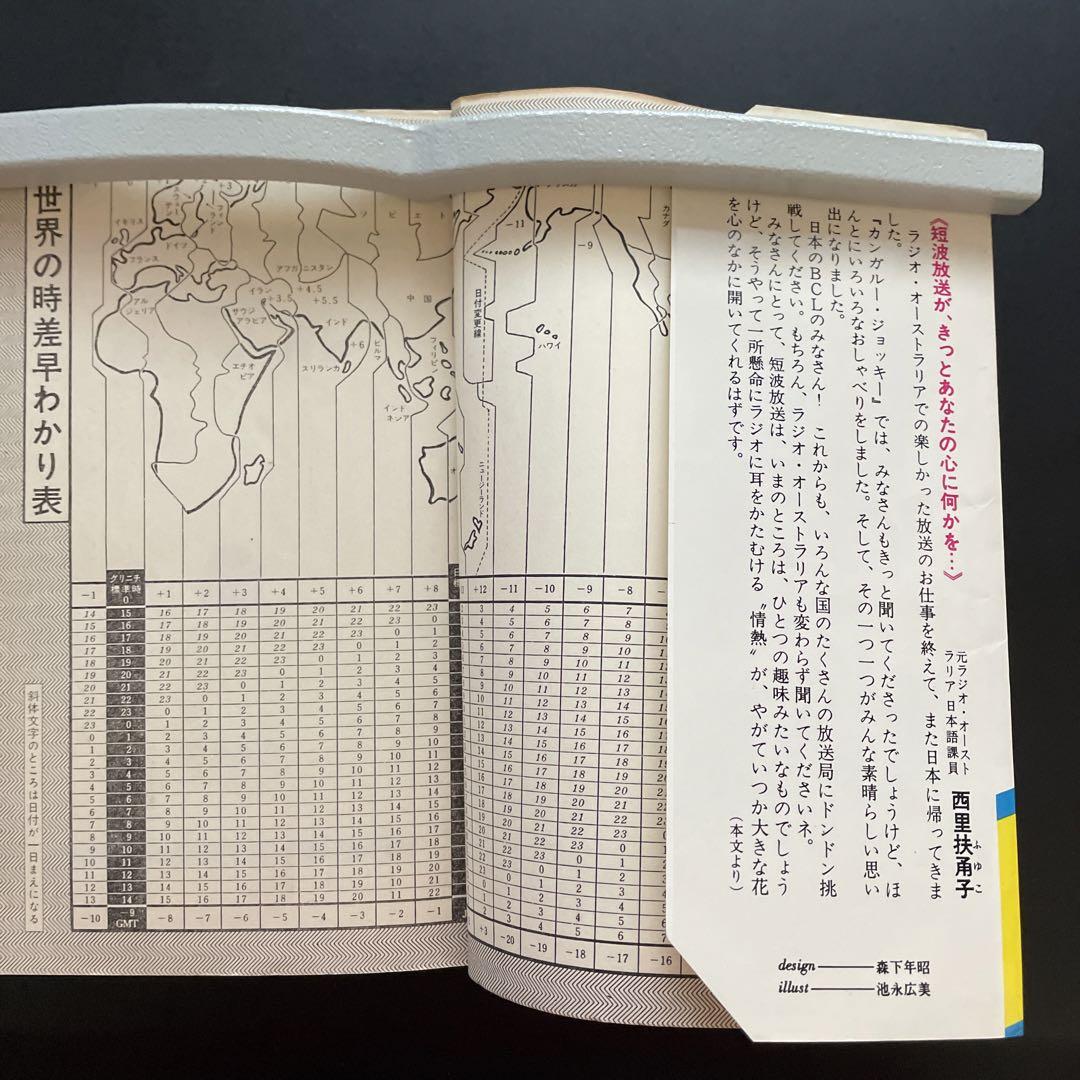 《短波放送が、きっとあなたの心に何かを…》
元ラジオ・オースト
ラリア日本語課員
西里扶甬子
ふゆこ
ラジオ・オーストラリアでの楽しかった放送のお仕事を終えて、また日本に帰ってきま
した。
『カンガルー・ジョッキー』では、みなさんもきっと聞いてくださったでしょうけど、ほ
んとにいろいろなおしゃべりをしました。そして、その一つ一つがみんな素晴らしい思い
出になりました。
日本のBCLのみなさん! これからも、いろんな国のたくさんの放送局にドンドン挑
戦してください。もちろん、ラジオ・オーストラリアも変わらず聞いてくださいネ。
みなさんにとって、短波放送は、いまのところは、ひとつの趣味みたいなものでしょう
けど、そうやって一所懸命にラジオに耳をかたむける〝情熱〟が、やがていつか大きな花
を心のなかに開いてくれるはずです。
(本文より)
design——森下年昭
illust——池永広美
世界の時差早わかり表
斜体文字のところは日付が一日まえになる
イギリス
ドイツ
フランス
アル
ジェリア
サウジ
アラビア
イラン
+3.5
アフガニスタン
+4.5
+5.5
インド
+6
スリランカ
ビルマ
エチオ
ピア
ソビエト
中国
フィリピン
インド
ネシア
日付変更線
ニュージーランド
ハワイ
カナダ
-11
-9
-1 グリニチ標準時0 +1 +2 +3 +4 +5 +6 +7 +8
14 15 16 17 18 19 20 21 22 23
15 16 17 18 19 20 21 22 23 0
16 17 18 19 20 21 22 23 0 1
17 18 19 20 21 22 23 0 1 2
18 19 20 21 22 23 0 1 2 3
19 20 21 22 23 0 1 2 3 4
20 21 22 23 0 1 2 3 4 5
21 22 23 0 1 2 3 4 5 6
22 23 0 1 2 3 4 5 6 7
23 0 1 2 3 4 5 6 7 8
0 1 2 3 4 5 6 7 8 9
1 2 3 4 5 6 7 8 9 10
2 3 4 5 6 7 8 9 10 11
3 4 5 6 7 8 9 10 11 12
4 5 6 7 8 9 10 11 12 13
5 6 7 8 9 10 11 12 13 14
6 7 8 9 10 11 12 13 14 15
7 8 9 10 11 12 13 14 15 16
8 9 10 11 12 13 14 15 16 17
9 10 11 12 13 14 15 16 17 18
10 11 12 13 14 15 16 17 18 19
11 12 13 14 15 16 17 18 19 20
12 13 14 15 16 17 18 19 20 21
13 14 15 16 17 18 19 20 11 22
-10 -9 GMT -8 -7 -6 -5 -4 -3 -2 -1
+12 -11 -10 -9 -8
3 4 5 6 7
4 5 6 7 8
5 6 7 8 9
6 7 8 9 10
7 8 9 10 11
8 9 10 11 12
9 10 11 12 13
10 11 12 13 14
11 12 13 14 15
12 13 14 15 16
13 14 15 16 17
14 15 16 17 18
15 16 17 18 19
16 17 18 19 20
17 18 19 20 21
18 19 20 21 22
19 20 21 22 23
20 21 22 23 0
21 22 23 0 1
22 23 0 1 2
23 0 1 2 3
0 1 2 3 4
1 2 3 4 5
2 3 4 5 6
+3 -20 -19 -18 -17 -16